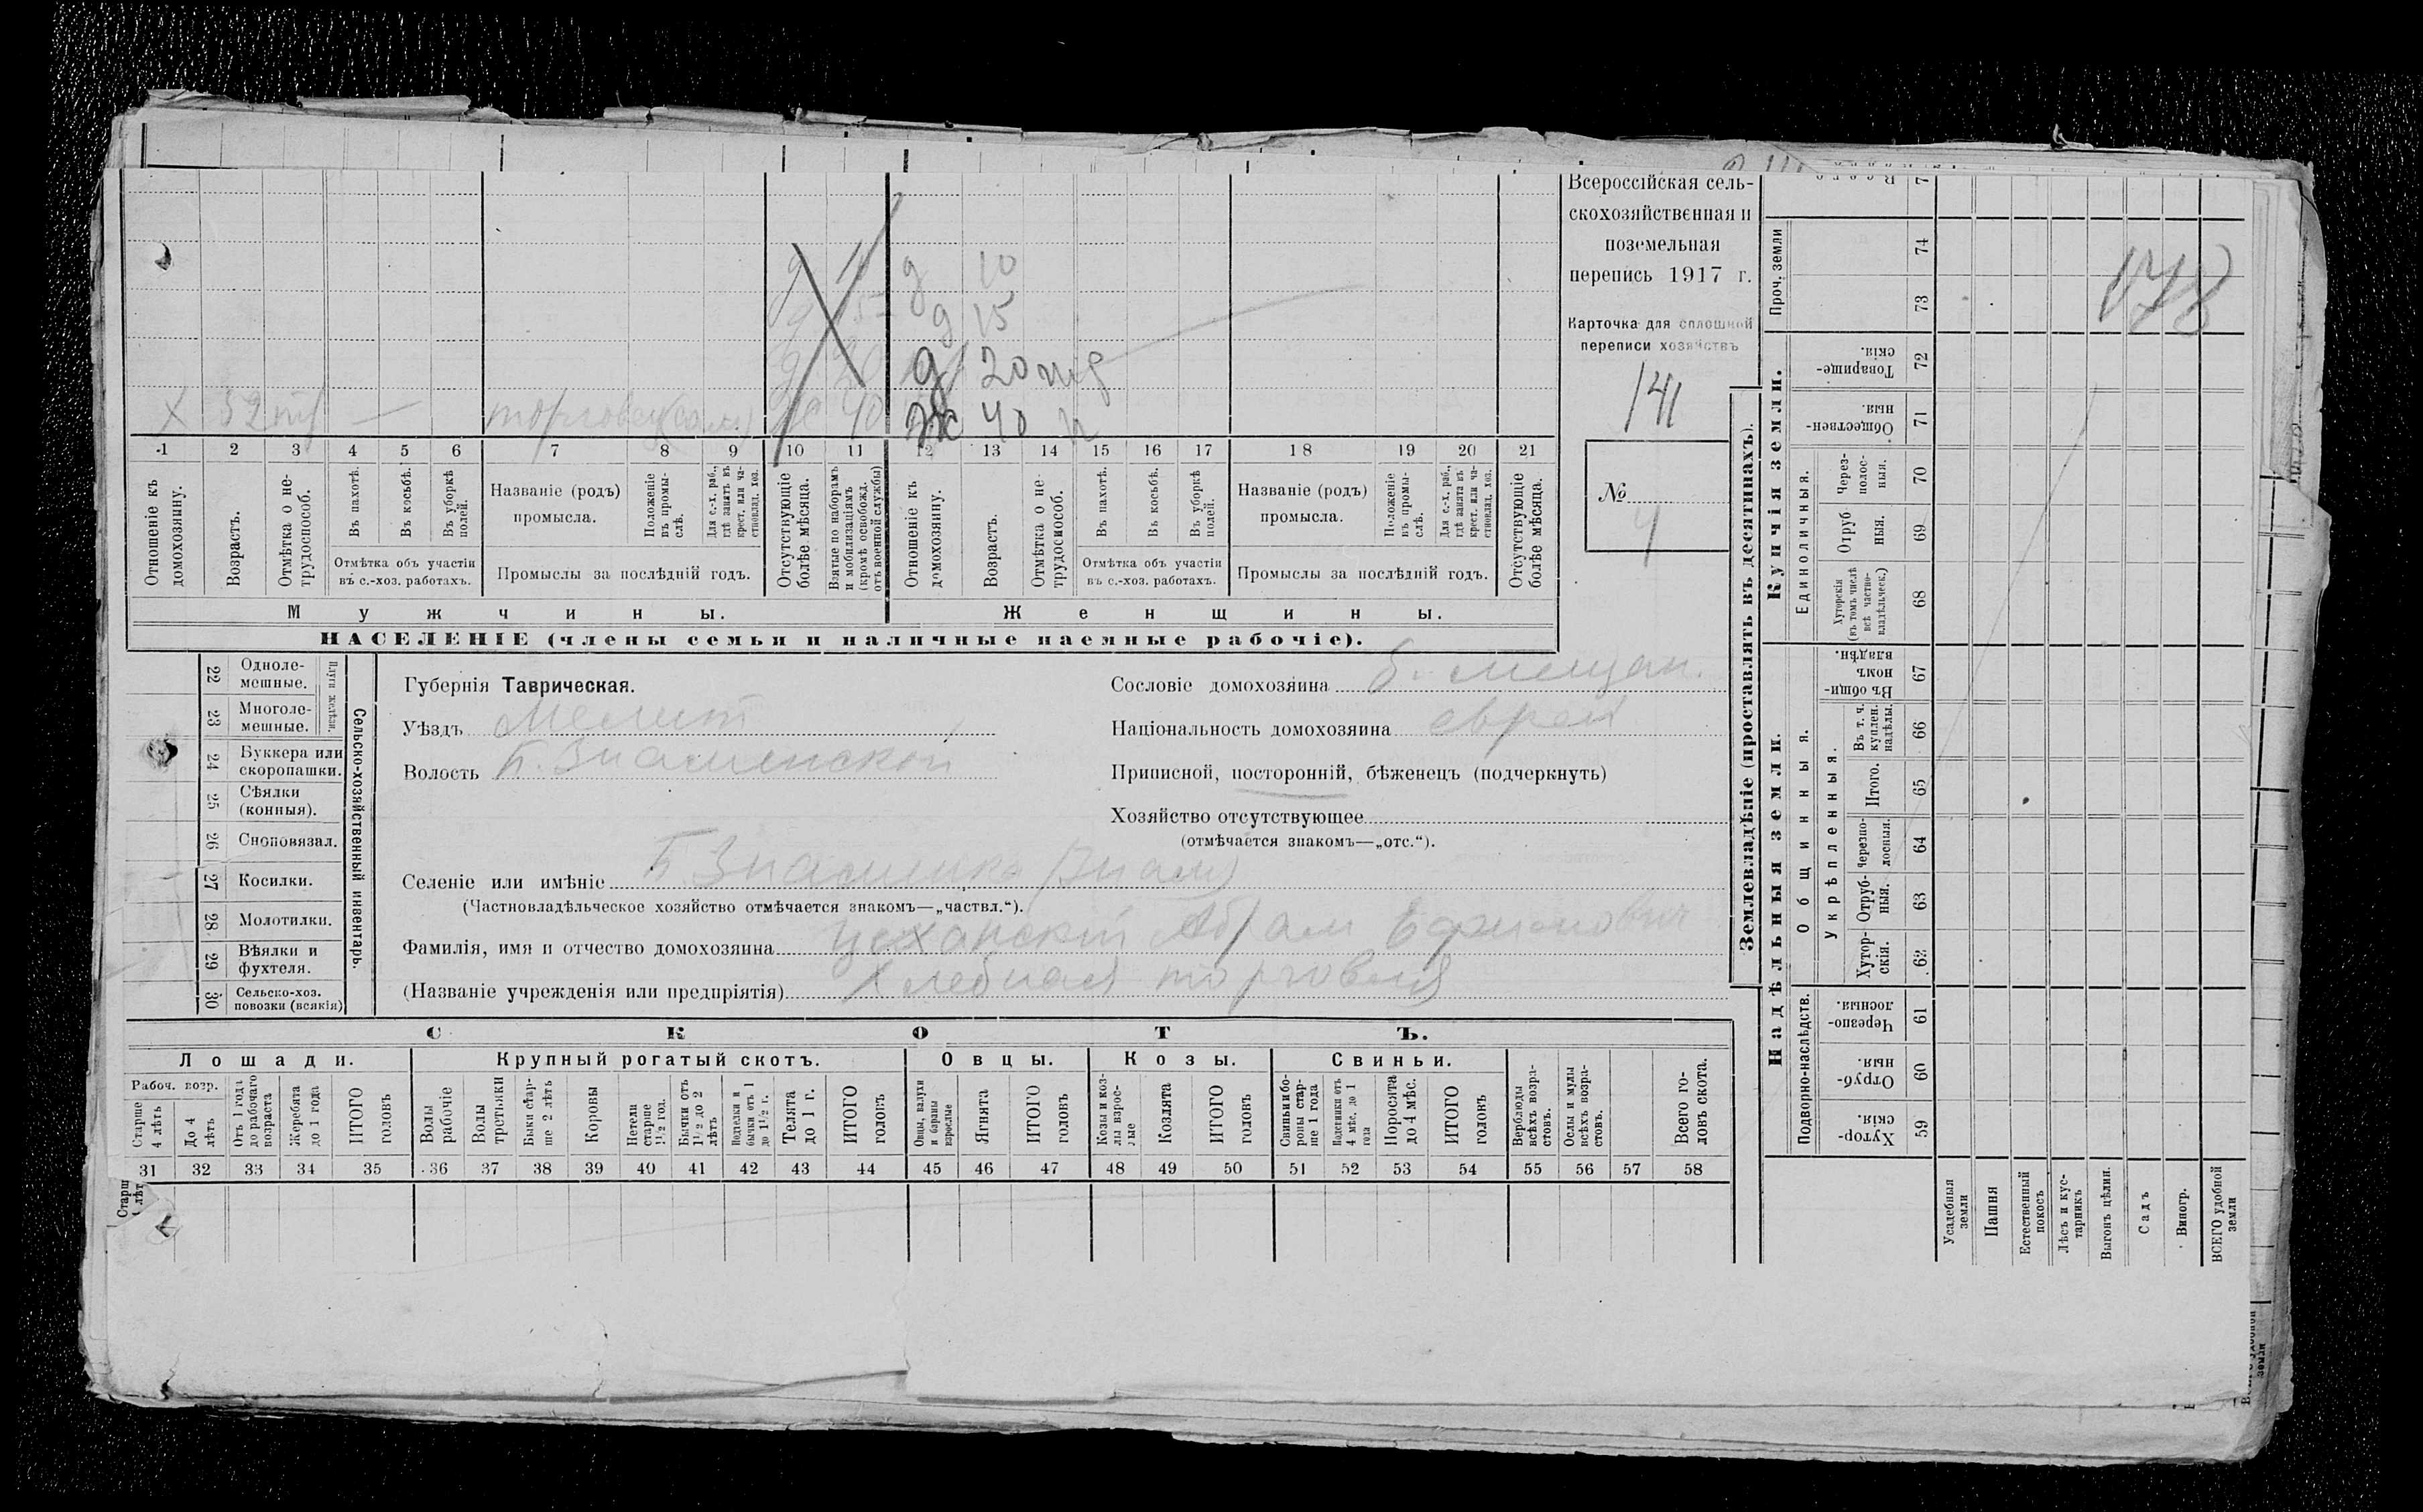 Всероссійская сель-
скохозяйственная и
поземельная
перепись 1917 г.
Карточка для сплошной
переписи хозяйствъ
141
№ 4
178
д 10
д 15
д 20
Ж 40
Х 52
1 2 3 4 5 6 7 8 9 10 11 12 13 14 15 16 17 18 19 20 21
Отношеніе къ домохозяину.
Возрастъ.
Отмѣтка о не-трудоспособ.
Въ пахотѣ.
Въ косьбѣ.
Въ уборкѣ полей.
Отмѣтка объ участіи въ с.-хоз. работахъ.
Названіе (родъ) промысла.
Положеніе въ промы-слѣ.
Для с.-х. раб., гдѣ занятъ въ крест. или ча-стновлад. хоз.
Промыслы за послѣдній годъ.
Отсутствующіе болѣе мѣсяца.
Взятые по наборамъ и мобилизаціямъ (кромѣ освобожд. отъ военной службы)
Отношеніе къ домохозяину.
Возрастъ.
Отмѣтка о не-трудоспособ.
Въ пахотѣ.
Въ косьбѣ.
Въ уборкѣ полей.
Отмѣтка объ участіи въ с.-хоз. работахъ.
Названіе (родъ) промысла.
Положеніе въ промы-слѣ.
Для с.-х. раб., гдѣ занята въ крест. или ча-стновлад. хоз.
Промыслы за послѣдній годъ.
Отсутствующіе болѣе мѣсяца.
Мужчины.
Женщины.
НАСЕЛЕНІЕ (члены семьи и наличные наемные рабочіе).
22 Одноле-мешные.
23 Многоле-мешные.
Плуги желѣзн.
24 Буккера или скоропашки.
25 Сѣялки (конныя).
26 Сноповязал.
27 Косилки.
28 Молотилки.
29 Вѣялки и фухтеля.
30 Сельско-хоз. повозки (всякія)
Сельско-хозяйственный инвентарь.
Губернія Таврическая.
Уѣздъ Мелит
Волость Б. Знаменской
Сословіе домохозяина б. мещан.
Національность домохозяина еврей
Приписной, посторонній, бѣженецъ (подчеркнуть)
Хозяйство отсутствующее
(отмѣчается знакомъ—„отс.“).
Селеніе или имѣніе Б. Знаменка
(Частновладѣльческое хозяйство отмѣчается знакомъ—„частвл.“).
Фамилія, имя и отчество домохозяина Цеханскій Абрам Ефимович
(Названіе учрежденія или предпріятія) Хлебная торговля
СКОТЪ.
Лошади.
Крупный рогатый скотъ.
Овцы.
Козы.
Свиньи.
Рабоч. возр.
Старше 4 лѣтъ
До 4 лѣтъ
Отъ 1 года до рабочаго возраста
Жеребята до 1 года
ИТОГО головъ
Волы рабочіе
Волы третьяки
Быки стар-ше 2 лѣтъ
Коровы
Нетели старше 1½ год.
Бычки отъ 1½ до 2 лѣтъ
Подтелки и бычки отъ 1 до 1½ г.
Телята до 1 г.
ИТОГО головъ
Овцы, валухи и бараны взрослые
Ягнята
ИТОГО головъ
Козы и коз-лы взрос-лые
Козлята
ИТОГО головъ
Свиньи и бо-ровы стар-ше 1 года
Подсвинки отъ 4 мѣс. до 1 года
Поросята до 4 мѣс.
ИТОГО головъ
Верблюды всѣхъ возра-стовъ.
Ослы и мулы всѣхъ возра-стовъ.
Всего го-ловъ скота.
31 32 33 34 35 36 37 38 39 40 41 42 43 44 45 46 47 48 49 50 51 52 53 54 55 56 57 58
Землевладѣніе (проставлять въ десятинахъ).
Проч. земли
74
73
Купчія земли.
Товарище-скія. 72
Обществен-ныя. 71
Единоличныя.
Через-полос-ныя. 70
Отруб-ныя. 69
Хуторскія (въ томъ числѣ всѣ частно-владѣльческ.) 68
Надѣльныя земли.
Общинныя.
Въ общи-номъ владѣн. 67
Укрѣпленныя.
Въ т. ч. куплен. надѣлы. 66
Итого. 65
Черезпо-лосныя. 64
Отруб-ныя. 63
Хутор-скія. 62
Подворно-наслѣдств.
Черезпо-лосныя. 61
Отруб-ныя. 60
Хутор-скія. 59
Усадебныя земли
Пашня
Естественный покосъ
Лѣсъ и кус-тарникъ
Выгонъ цѣлин.
Садъ
Виногр.
ВСЕГО удобной земли